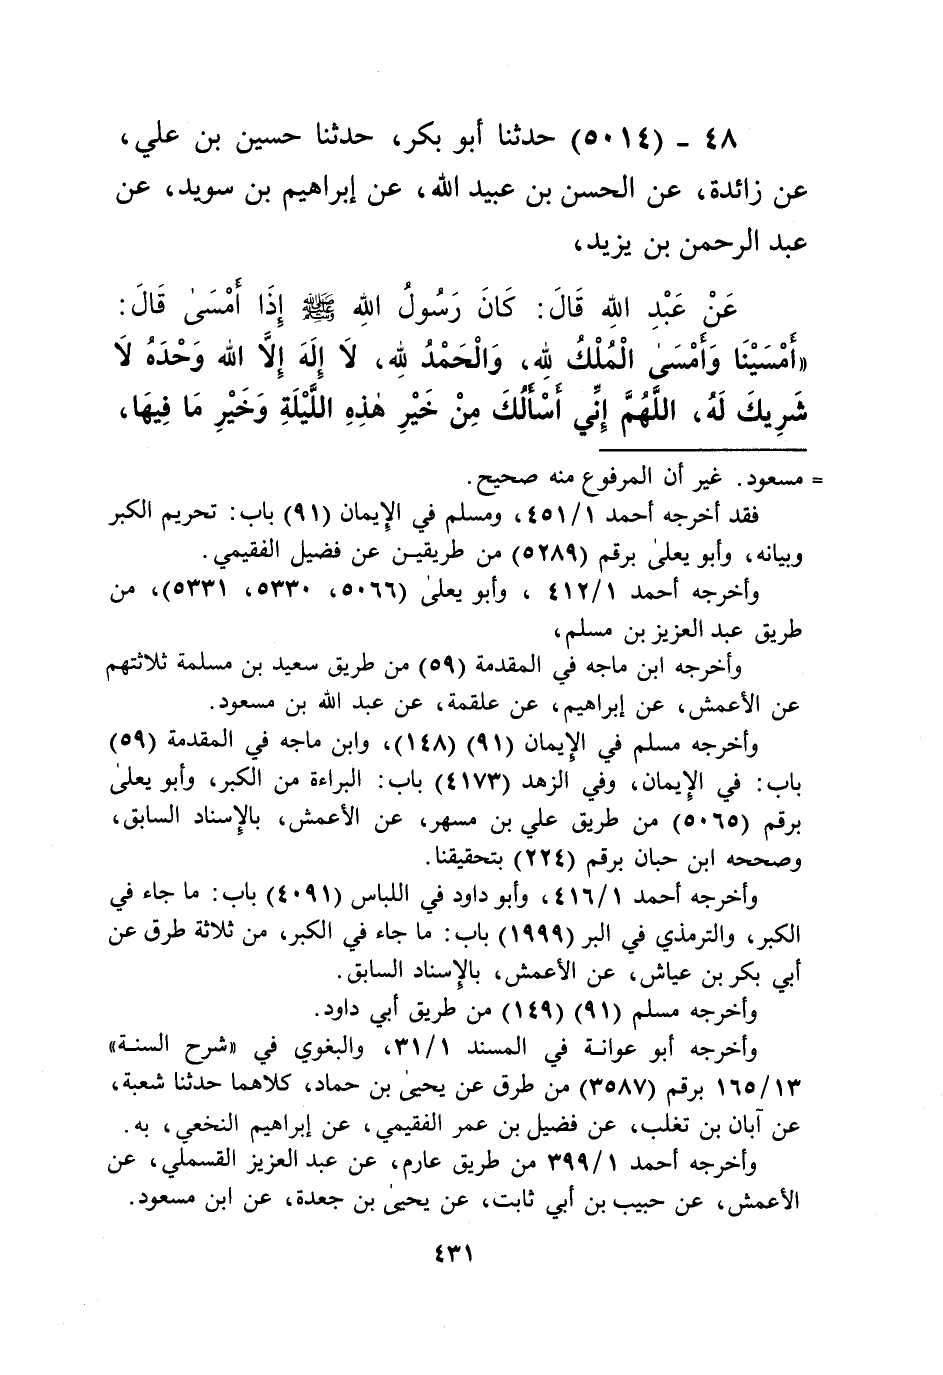 ٤٨ - (٥٠١٤) حدثنا أبو بكر، حدثنا حسين بن علي،
عن زائدة، عن الحسن بن عبيد الله، عن إبراهيم بن سويد، عن
عبد الرحمن بن يزيد،
عَنْ عَبْدِ الله قَالَ: كَانَ رَسُولُ اللهِ ﷺ إِذَا أَمْسَىٰ قَالَ:
«أَمْسَيْنَا وَأَمْسَىٰ الْمُلْكُ لله، وَالْحَمْدُ لله، لَا إِلَهَ إِلَّا الله وَحْدَهُ لَا
شَرِيكَ لَهُ، اللَّهُمَّ إِنِّي أَسْأَلُكَ مِنْ خَيْرِ هٰذِهِ اللَّيْلَةِ وَخَيْرِ مَا فِيهَا،
= مسعود. غير أن المرفوع منه صحيح.
فقد أخرجه أحمد ٤٥١/١، ومسلم في الإيمان (٩١) باب: تحريم الكبر
وبيانه، وأبو يعلىٰ برقم (٥٢٨٩) من طريقين عن فضيل الفقيمي.
وأخرجه أحمد ٤١٢/١ ، وأبو يعلىٰ (٥٠٦٦، ٥٣٣٠، ٥٣٣١)، من
طريق عبد العزيز بن مسلم،
وأخرجه ابن ماجه في المقدمة (٥٩) من طريق سعيد بن مسلمة ثلاثتهم
عن الأعمش، عن إبراهيم، عن علقمة، عن عبد الله بن مسعود.
وأخرجه مسلم في الإيمان (٩١) (١٤٨)، وابن ماجه في المقدمة (٥٩)
باب: في الإيمان، وفي الزهد (٤١٧٣) باب: البراءة من الكبر، وأبو يعلىٰ
برقم (٥٠٦٥) من طريق علي بن مسهر، عن الأعمش، بالإسناد السابق،
وصححه ابن حبان برقم (٢٢٤) بتحقيقنا.
وأخرجه أحمد ٤١٦/١، وأبو داود في اللباس (٤٠٩١) باب: ما جاء في
الكبر، والترمذي في البر (١٩٩٩) باب: ما جاء في الكبر، من ثلاثة طرق عن
أبي بكر بن عياش، عن الأعمش، بالإسناد السابق.
وأخرجه مسلم (٩١) (١٤٩) من طريق أبي داود.
وأخرجه أبو عوانة في المسند ٣١/١، والبغوي في «شرح السنة»
١٦٥/١٣ برقم (٣٥٨٧) من طرق عن يحيىٰ بن حماد، كلاهما حدثنا شعبة،
عن آبان بن تغلب، عن فضيل بن عمر الفقيمي، عن إبراهيم النخعي، به.
وأخرجه أحمد ٣٩٩/١ من طريق عارم، عن عبد العزيز القسملي، عن
الأعمش، عن حبيب بن أبي ثابت، عن يحيىٰ بن جعدة، عن ابن مسعود.
٤٣١